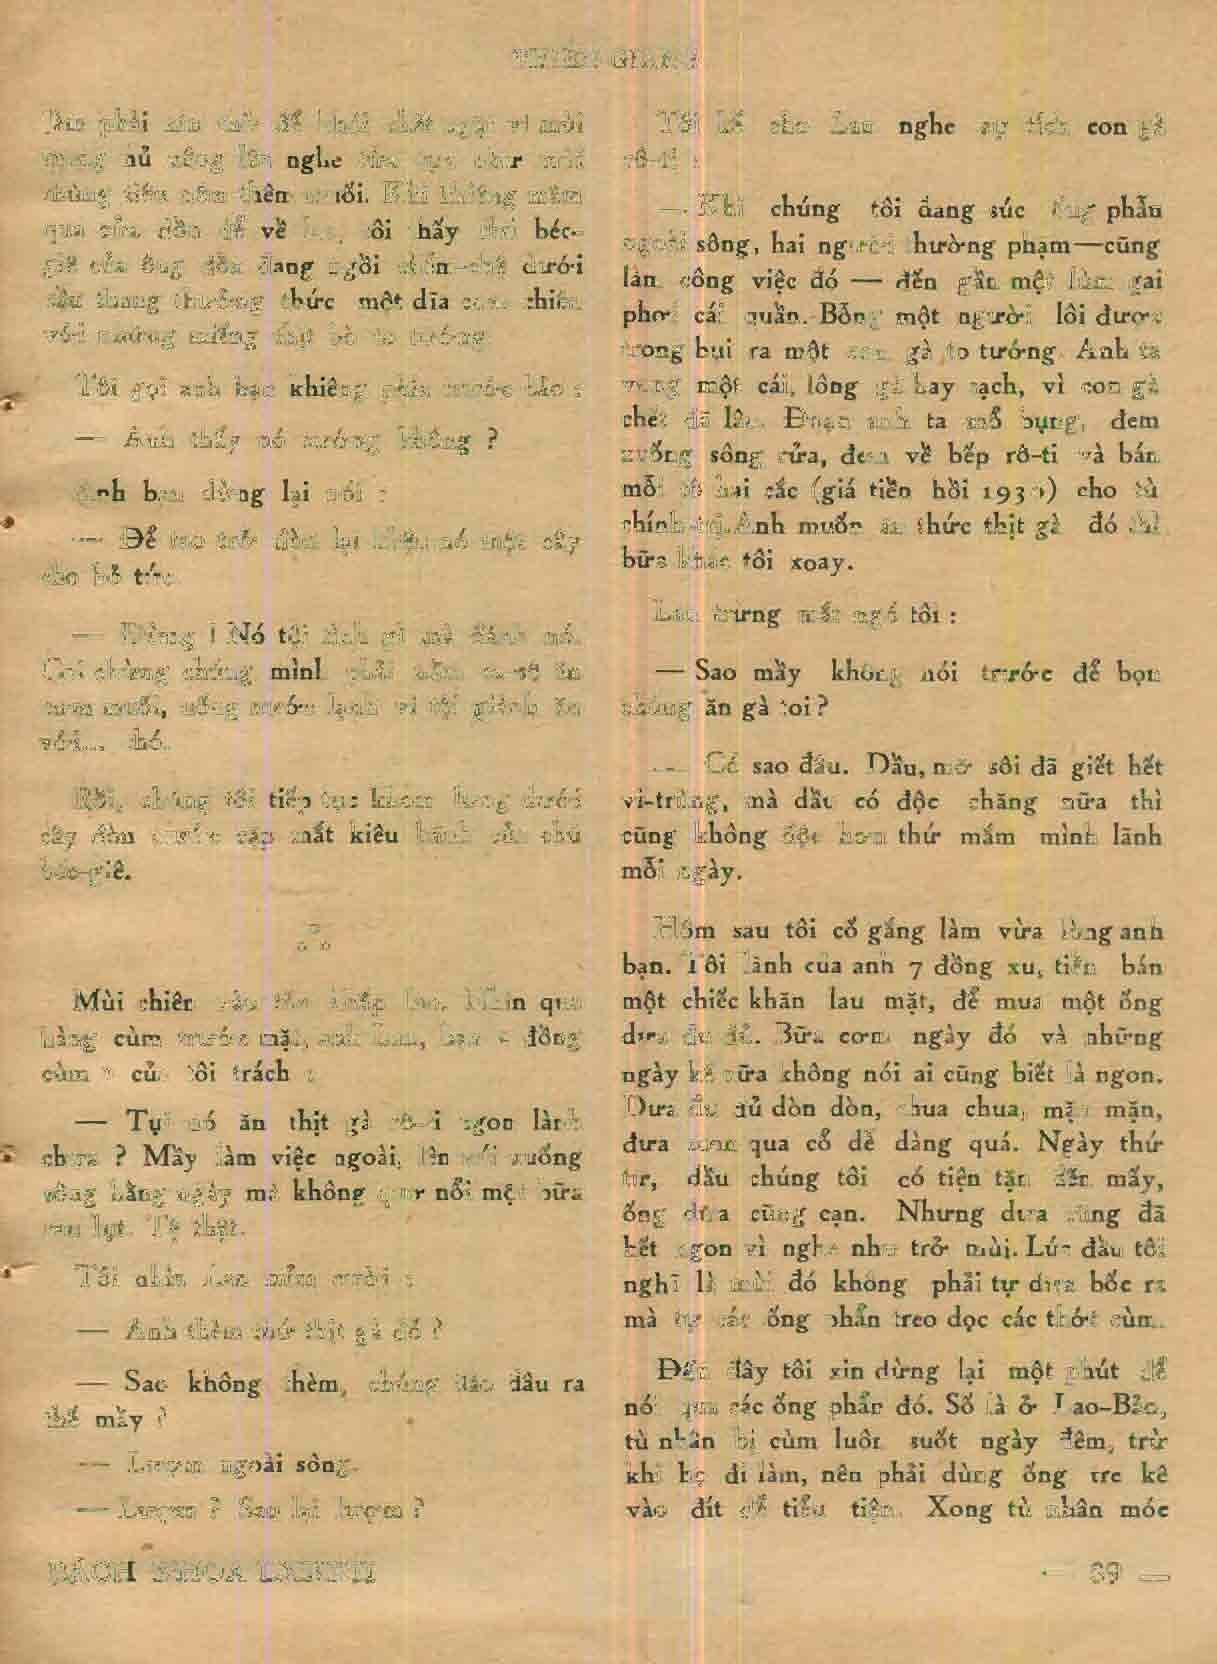 THIÊN GIANG
phải để chết ngạt vì mùi
nủ xông lên nghe như mùi
chùng tiêu năm thên muỗi. Khi khiêng mâm
qua cửa đồn để về lao, tôi thấy thơ béc-
giê của ông đồn đang ngồi chồm-chệ dưới
cầu thang thưởng thức một dĩa cơm chiên
với những miếng thịt bò to tướng.
Tôi gọi anh bạn khiêng phía trước bảo :
— Anh thấy nó sướng không ?
Anh bạn dừng lại nói :
— Để tao trở đòn lại khện nó một cây
cho bỏ tức.
— Đừng ! Nó tội tình gì mà đánh nó.
Coi chừng chúng mình phải nằm ca-sô ăn
cơm muối, uống nước lạnh vì tội giành ăn
với... chó.
Rồi, chúng tôi tiếp tục khom lưng dưới
cây đòn trước cặp mắt kiêu hãnh của chú
béc-giê.
Mùi chiên xào tỏa khắp lao. Nhìn qua
hàng cùm trước mặt, anh Lan, bạn « đồng
cùm » của tôi trách :
— Tụi nó ăn thịt gà rô-ti ngon lành
chưa ? Mầy làm việc ngoài, lên núi xuống
sông hằng ngày mà không quơ nổi một bữa
coi lọt. Tệ thật.
Tôi nhìn Lan mỉm cười :
— Anh thèm thứ thịt gà đó ?
— Sao không thèm, chúng đào đâu ra
thế mầy ?
— Lượm ngoài sông.
— Lượm ? Sao lại lượm ?
Tôi kể cho Lan nghe sự tích con gà
rô-ti :
— Khi chúng tôi đang súc ống phẩn
ngoài sông, hai người thường phạm—cũng
làm công việc đó — đến gần một lùm gai
phơi cái quần. Bỗng một người lôi được
trong bụi ra một con gà to tướng. Anh ta
vung một cái, lông gà bay sạch, vì con gà
chết đã lâu. Đoạn anh ta mổ bụng, đem
xuống sông rửa, đem về bếp rô-ti và bán
mỗi tô hai cắc (giá tiền hồi 1930) cho tù
chính-trị. Anh muốn ăn thức thịt gà đó thì
bữa khác tôi xoay.
Lan trừng mắt ngó tôi :
— Sao mầy không nói trước để bọn
chúng ăn gà toi ?
— Có sao đâu. Dầu, mỡ sôi đã giết hết
vi-trùng, mà dầu có độc chăng nữa thì
cũng không độc hơn thứ mắm mình lãnh
mỗi ngày.
Hôm sau tôi cố gắng làm vừa lòng anh
bạn. Tôi lãnh của anh 7 đồng xu, tiền bán
một chiếc khăn lau mặt, để mua một ống
dưa đu đủ. Bữa cơm ngày đó và những
ngày kế nữa không nói ai cũng biết là ngon.
Dưa đu đủ dòn dòn, chua chua, mặn mặn,
đưa cơm qua cổ dễ dàng quá. Ngày thứ
tư, dầu chúng tôi có tiện tặn đến mấy,
ống dưa cũng cạn. Nhưng dưa cũng đã
hết ngon vì nghe như trở mùi. Lúc đầu tôi
nghĩ là mùi đó không phải tự dưa bốc ra
mà từ các ống phẩn treo dọc các thớt cùm.
Đến đây tôi xin dừng lại một phút để
nói qua các ống phẩn đó. Số là ở Lao-Bảo,
tù nhân bị cùm luôn suốt ngày đêm, trừ
khi họ đi làm, nên phải dùng ống tre kê
vào đít để tiểu tiện. Xong tù nhân móc
BÁCH KHOA
— 89 —